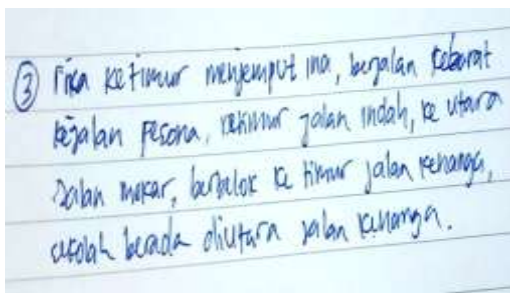 ③ Fika ketimur menjemput ina, berjalan kebarat
kejalan pesona, ketimur jalan indah, ke utara
Jalan mekar, berbelok ke timur jalan kenanga,
sekolah berada diutara jalan kenanga.